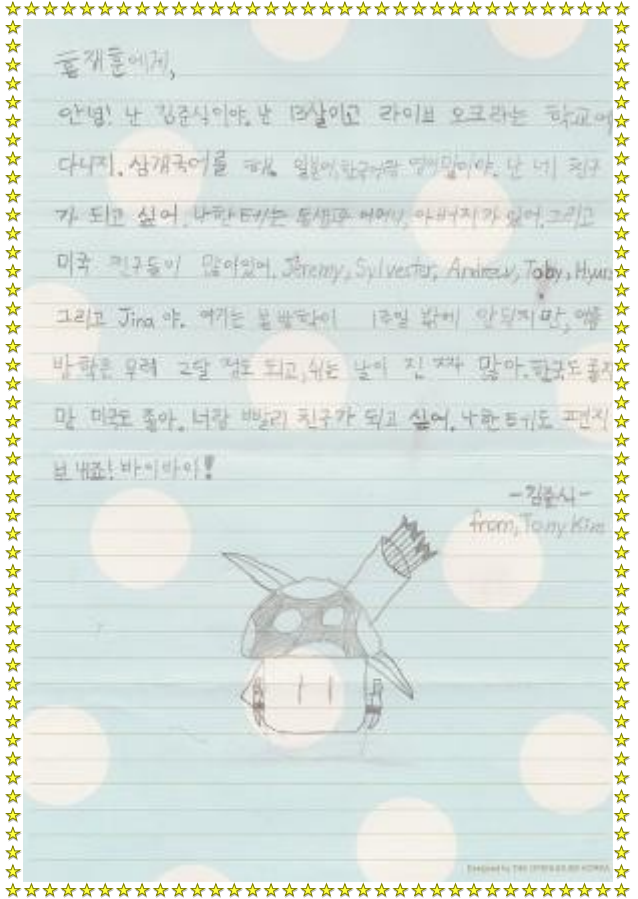 홍재훈에게,
안녕! 난 김준식이야. 난 13살이고 라이브 오크라는 학교에
다니지. 삼개국어를 해. 일본어, 한국어랑 영어말이야. 난 너의 친구
가 되고 싶어. 나한테는 동생과 어머니, 아버지가 있어. 그리고
미국 친구들이 많아있어. Jeremy, Sylvester, Andrew, Toby,
그리고 Jina 야. 여기는 봄방학이 1주일 밖에 안되지만, 여름
방학은 무려 2달 정도 되고, 쉬는 날이 진짜 많아. 한국도 좋지
만 미국도 좋아. 너랑 빨리 친구가 되고 싶어. 나한테도 편지
보내죠! 바이바이!
-김준식-
from, Tony Kim
Designed by